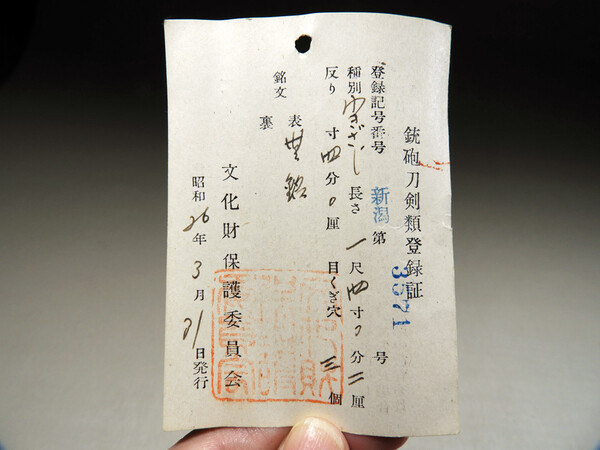 銃砲刀剣類登録証
登録記号番号 新潟 第 3571 号
種別 わきざし 長さ 一尺四寸〇分二厘
反り 寸四分〇厘 目くぎ穴 三個
銘文 表 無銘
裏
文化財保護委員会
昭和26年3月21日発行